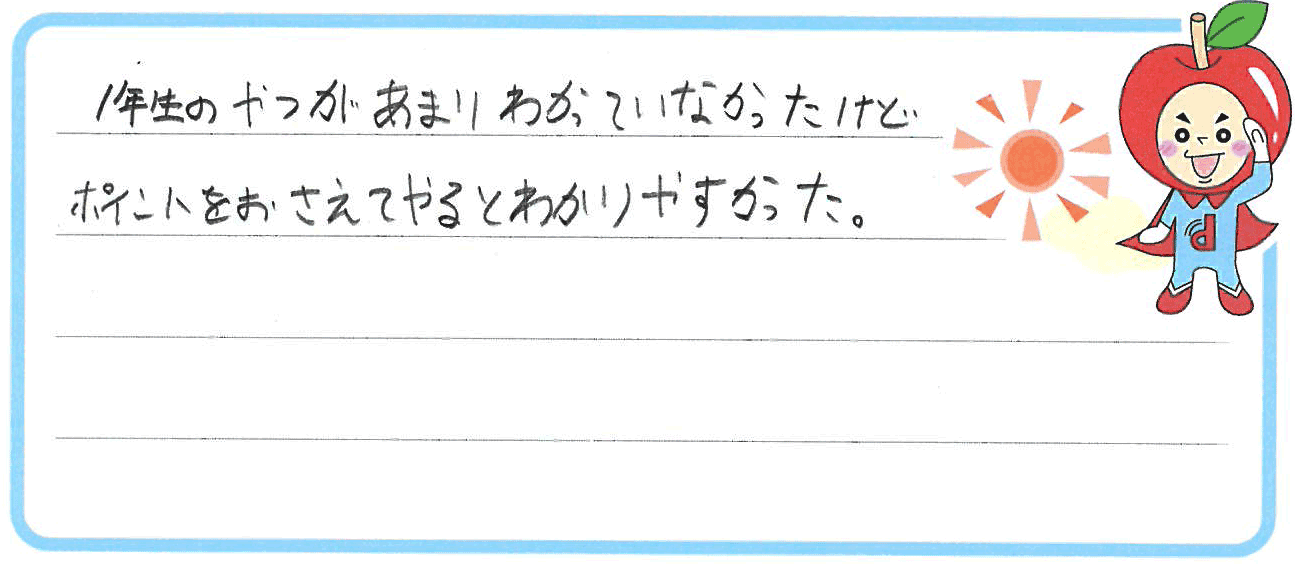 1年生のやつがあまりわかっていなかったけど
ポイントをおさえてやるとわかりやすかった。
d